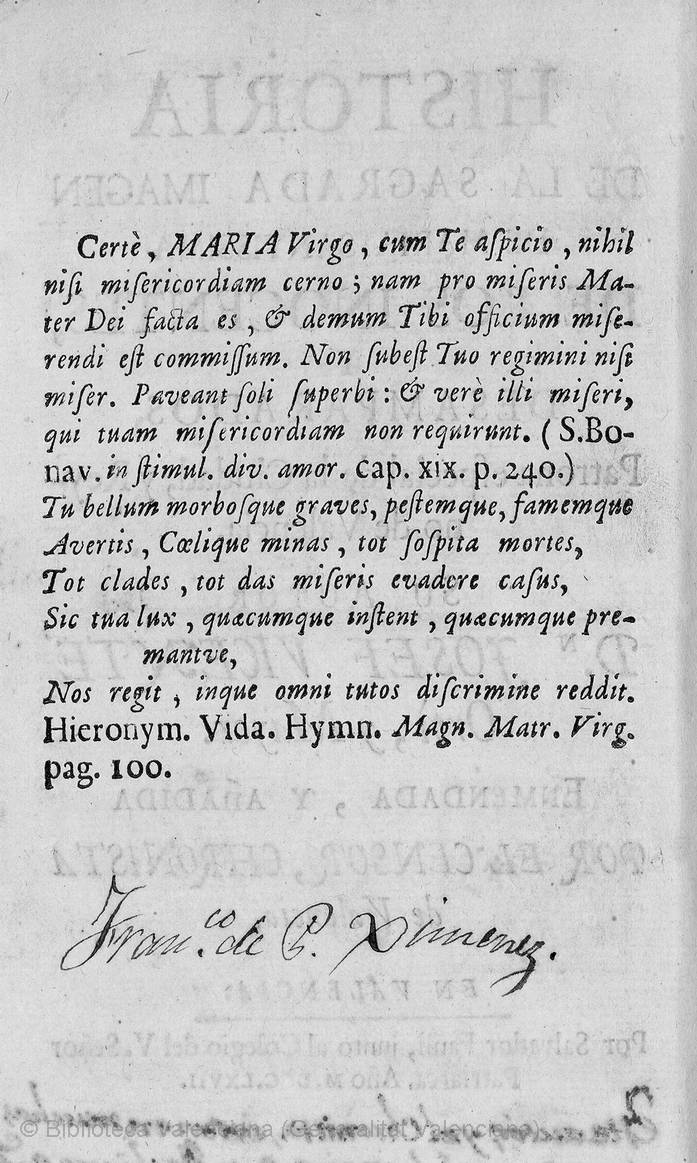 Certè, MARIA Virgo, cum Te aſpicio, nihil
niſi miſericordiam cerno; nam pro miſeris Ma-
ter Dei facta es, & demum Tibi officium miſe-
rendi eſt commiſſum. Non ſubeſt Tuo regimini niſi
miſer. Paveant ſoli ſuperbi: & verè illi miſeri,
qui tuam miſericordiam non requirunt. (S.Bo-
nav. in ſtimul. div. amor. cap. xix. p. 240.)
Tu bellum morboſque graves, peſtemque, famemque
Avertis, Cœlique minas, tot ſoſpita mortes,
Tot clades, tot das miſeris evadere caſus,
Sic tua lux, quæcumque inſtent, quæcumque pre-
mantve,
Nos regit, inque omni tutos diſcrimine reddit.
Hieronym. Vida. Hymn. Magn. Matr. Virg.
pag. 100.
Fran.co de P. Ximenez.
© Biblioteca Valenciana (Generalitat Valenciana)